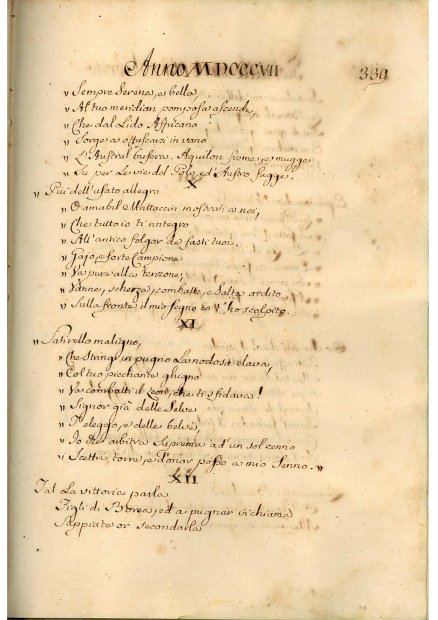 Anno MDCCCVII
339
" Sempre Serena, e bella,
" Al tuo meridian pomposa ascende,
" Che dal Lido Affricano
" Sorge a offuscarvi in vano
" L'Austral bufera. Aquilon freme, e mugge
" Su per le vie del Polo, ed Austro fugge.
X
" Piui dell'usato allegro
" O amabil Mattaccin mostrati a noi,
" Che tutto io ti rintegro
" All'antico folgor de fasti tuoi.
" Gajo, e forte Campione
" Va pure alla tenzone,
" Vanne, scherza, combatte, e Salta ardito
" Sulla fronte il mio segno io t'ho scolpito.
XI
" Satirello maligno,
" Che Stringi in pugno La nodosa clava,
" Col tuo picchante ghigno
" Va combatti il Leon, che ti sfidava!
" Signor già delle Selve
" T'eleggo, e delle belve,
" Io che arbitra Suprema ad'un sol cenno
" Scettri, torre, e donar posso a mio Senno. "
XII
Tal La vittoria parla
Figli di Borea, ed a pugnar vi chiama
Sappiate or secondarla